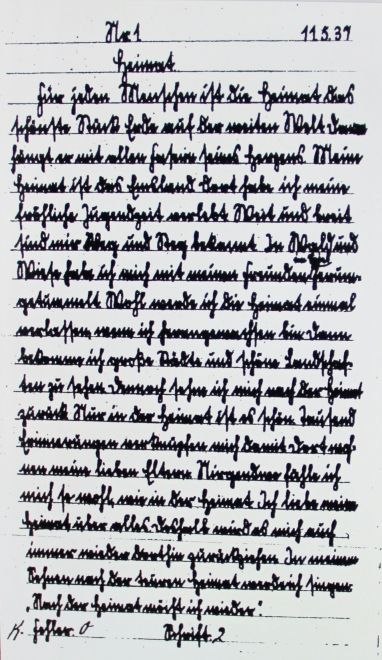 Nr 1 11.5.37
Heimat.
Für jeden Menschen ist die Heimat das
schönste Stück Erde auf der weiten Welt. Daran
hängt er mit allen Fasern seines Herzens. Mein
Heimat ist das Emsland. Dort habe ich meine
fröhliche Jugendzeit verlebt. Weit und breit
sind mir Weg und Steg bekannt. In Wald und
Wiese habe ich mich mit meinen Freunden herum-
getummelt. Wohl werde ich die Heimat einmal
verlassen, wenn ich herangewachsen bin. Dann
bekomme ich große Städte und schöne Landschaf-
ten zu sehen. Dennoch sehne ich mich nach der Heimat
zurück. Nur in der Heimat ist es schön. Tausend
Erinnerungen verknüpfen mich damit. Dort woh-
nen meine lieben Eltern. Nirgendwo fühle ich
mich so wohl, wie in der Heimat. Ich liebe meine
Heimat über alles. Deshalb wird es mich auch
immer wieder dorthin zurückziehen. In meinem
Sehnen nach der teuren Heimat werde ich singen
„Nach der Heimat möcht ich wieder."
K. Fehler 0 Schrift 2